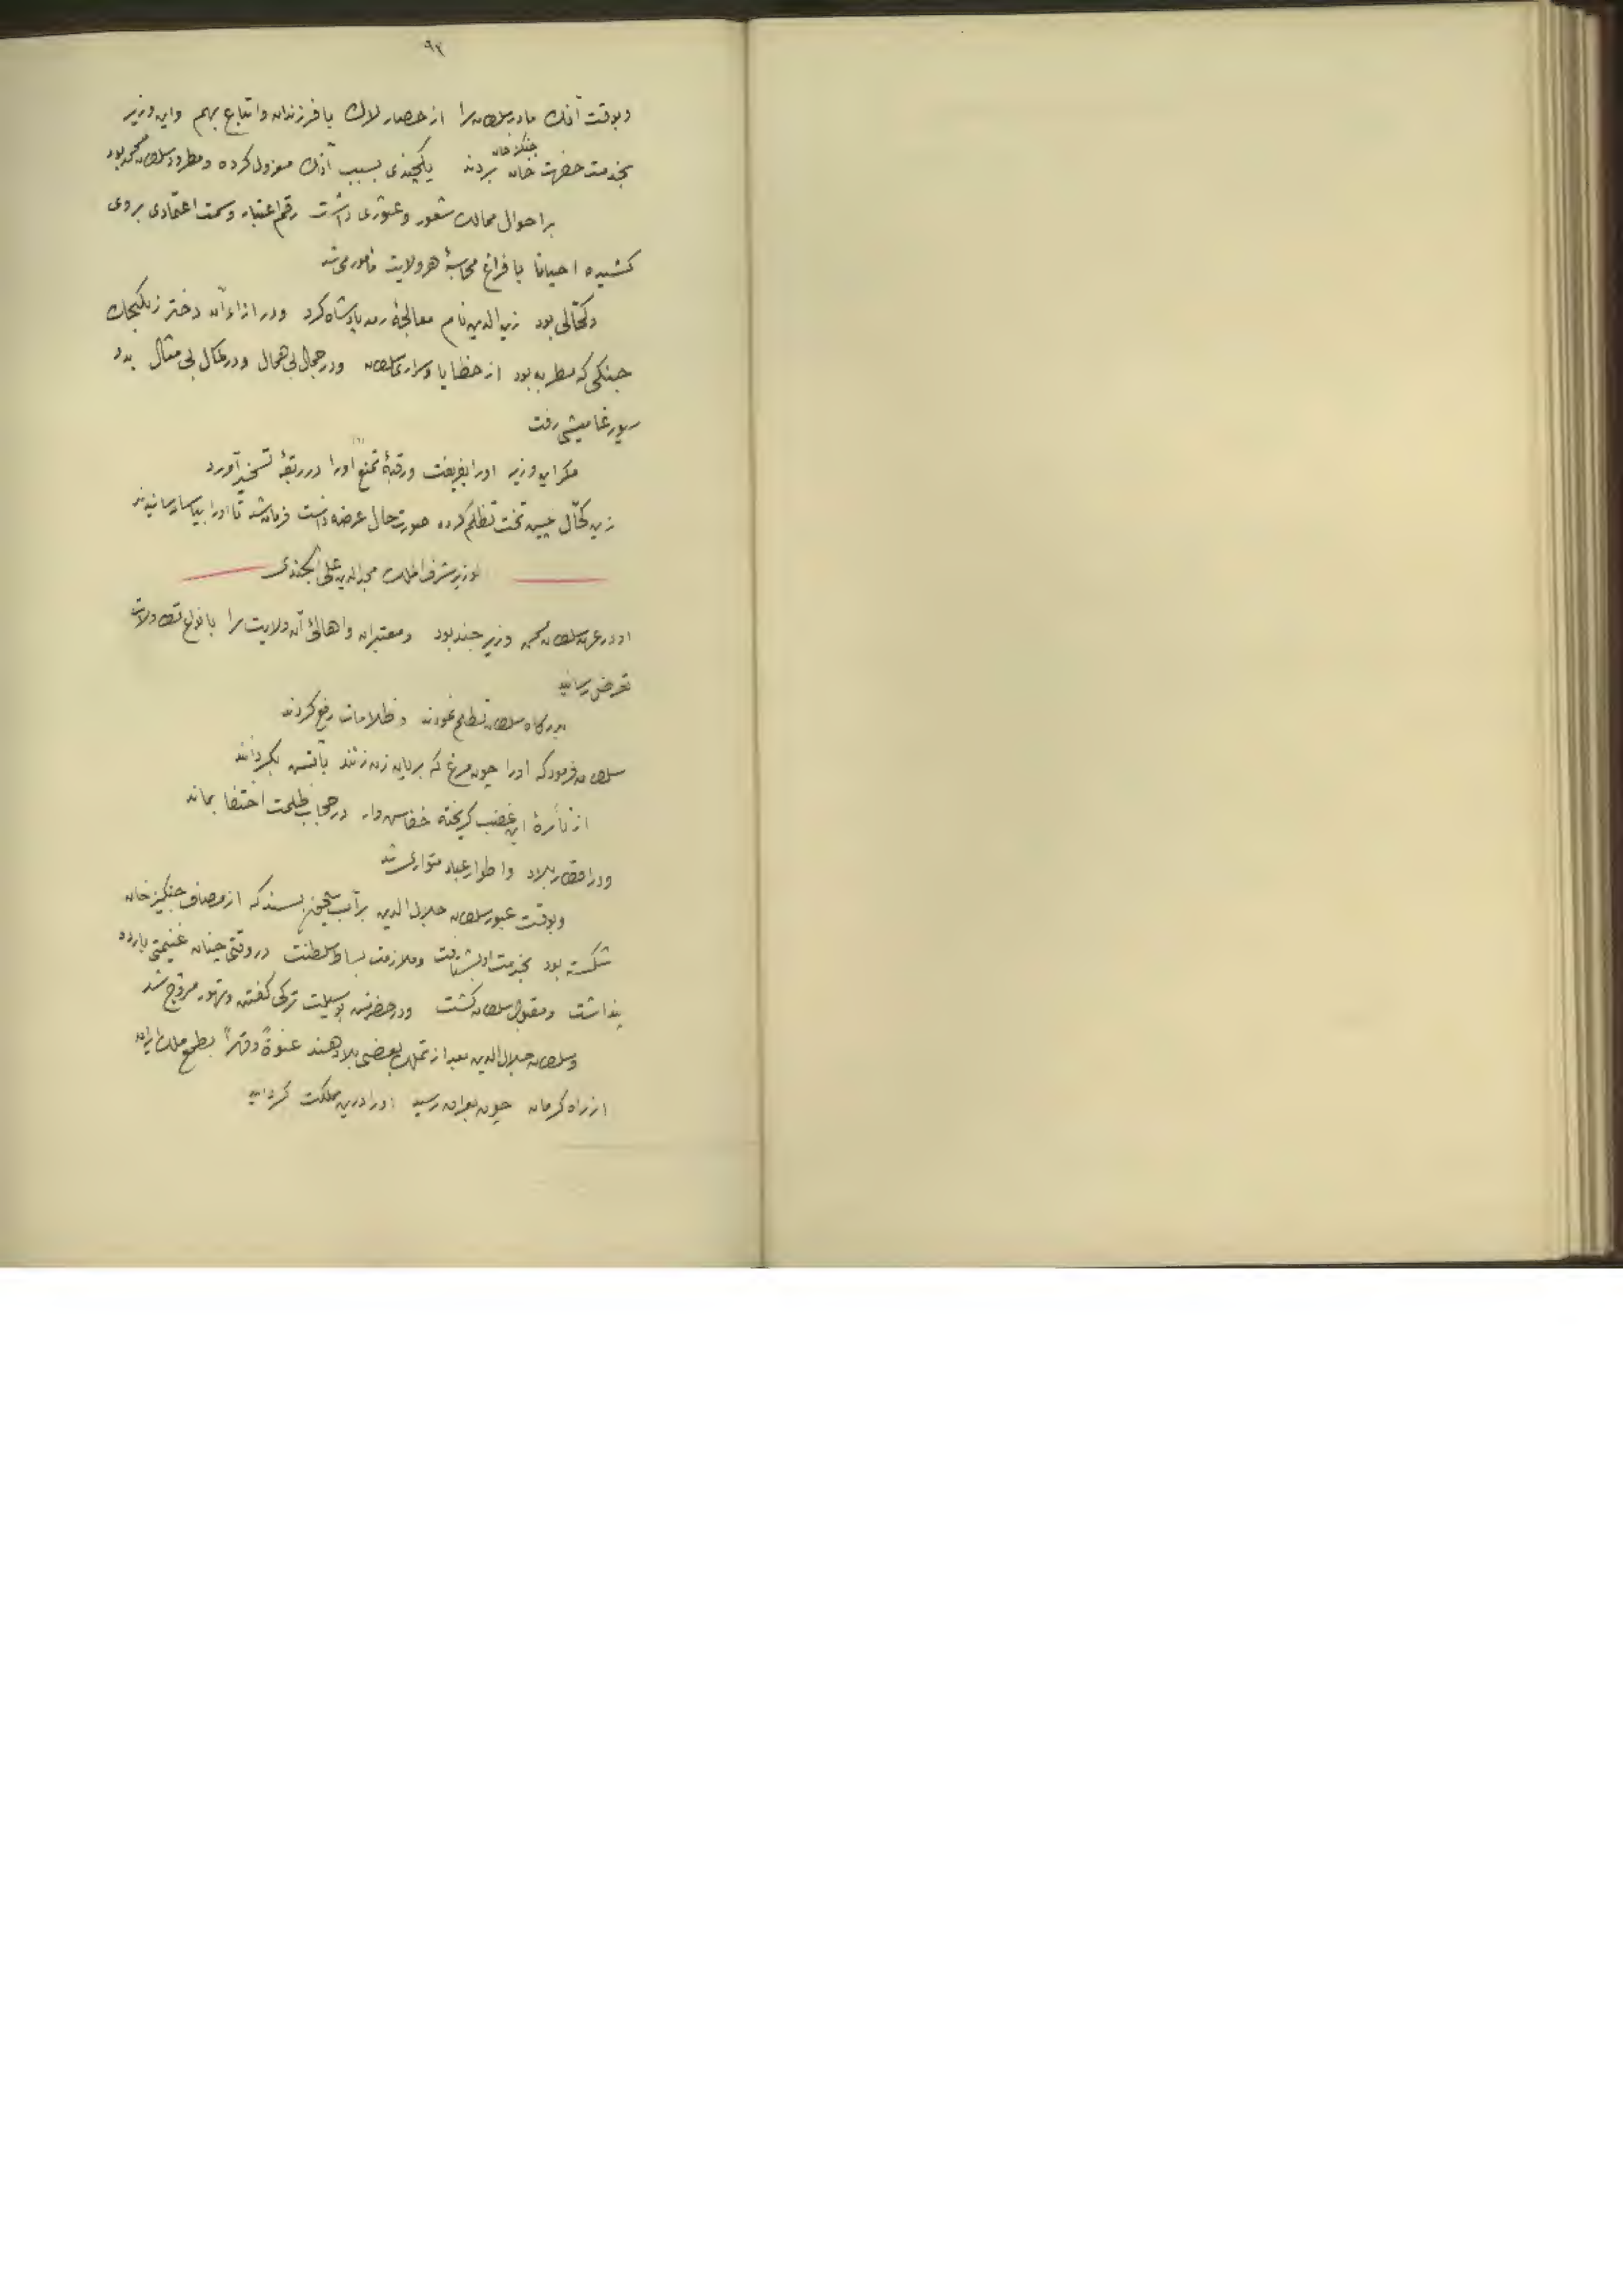 ٩٣
وبوقت آنک مادر سلطان را از حصار لال با فرزندان واتباع بهم واین وزیر
چنگزخان
بخدمت حضرت خان بردند یکچندی بسبب آنک معزول کرده ومطرود سلطان محمد بود
بر احوال ممالک شعور وعثوری داشت رقم اعتبار وسمت اعتمادی بروی
کشیده احیانا با فراغ محاسبهٔ هر ولایت مامور می شد
وکحّالی بود زین الدین نام معالجهٔ رمد پادشاه کرد ودر ازاء آن دختر زنکیجک
جنکی که مطربه بود از حظایا وسراری سلطان ودر جمال بی همال ودر کمال بی مثال بدو
سیورغامیشی رفت
مکر این وزیر اورا بفریفت ورقبهٔ تمنع اورا در ربقهٔ تسخیر آورد
زین کحّال پیش تخت تظلّم کرده صورت حال عرضه داشت فرمان شد تا اورا بیاسا رسانیدند
الوزیر شرف الملک مجد الدین علی الجندی
او در عهد سلطان محمد وزیر جند بود ومعتبران واهالئ آن ولایت را بانواع تطاولات
تعرض رسانید
بدرکاه سلطان تظلم نمودند وظلامات رفع کردند
سلطان فرمود که اورا چون مرغ که بر بابزن زنند بآتش بکردانند
از نائرهٔ این غضب کریخته خفاش وار در حجاب ظلمت اختفا بماند
ودر اقطار بلاد واطوار عباد متواری شد
وبوقت عبور سلطان جلال الدین بر آب سیحون بسند که از مصاف چنکیز خان
شکسته بود بخدمت او بشتافت وملازمت بساط سلطنت در وقتی چنان غنیمتی بارده
پنداشت ومقبول سلطان کشت ودر حضرتش بوسیلت ترکی کفتن وتهور مروّج شد
وسلطان جلال الدین بعد از تملک بعضی بلاد هند عنوةً وقهراً بطمع ملک ایران
از راه کرمان چون بعراق رسید اورا درین مملکت کردانید